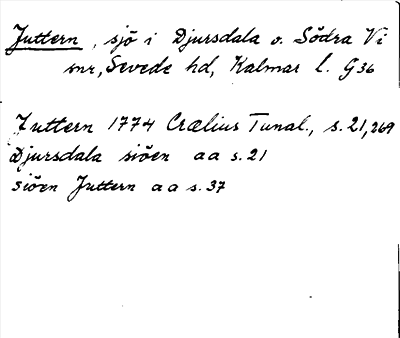 Juttern, sjö i Djursdala o. Södra Vi
snr, Sevede hd, Kalmar l. G36
Juttern 1774 Crælius Tunal., s. 21, 269
Djursdala siöen aa s. 21
siöen Juttern aa s. 37